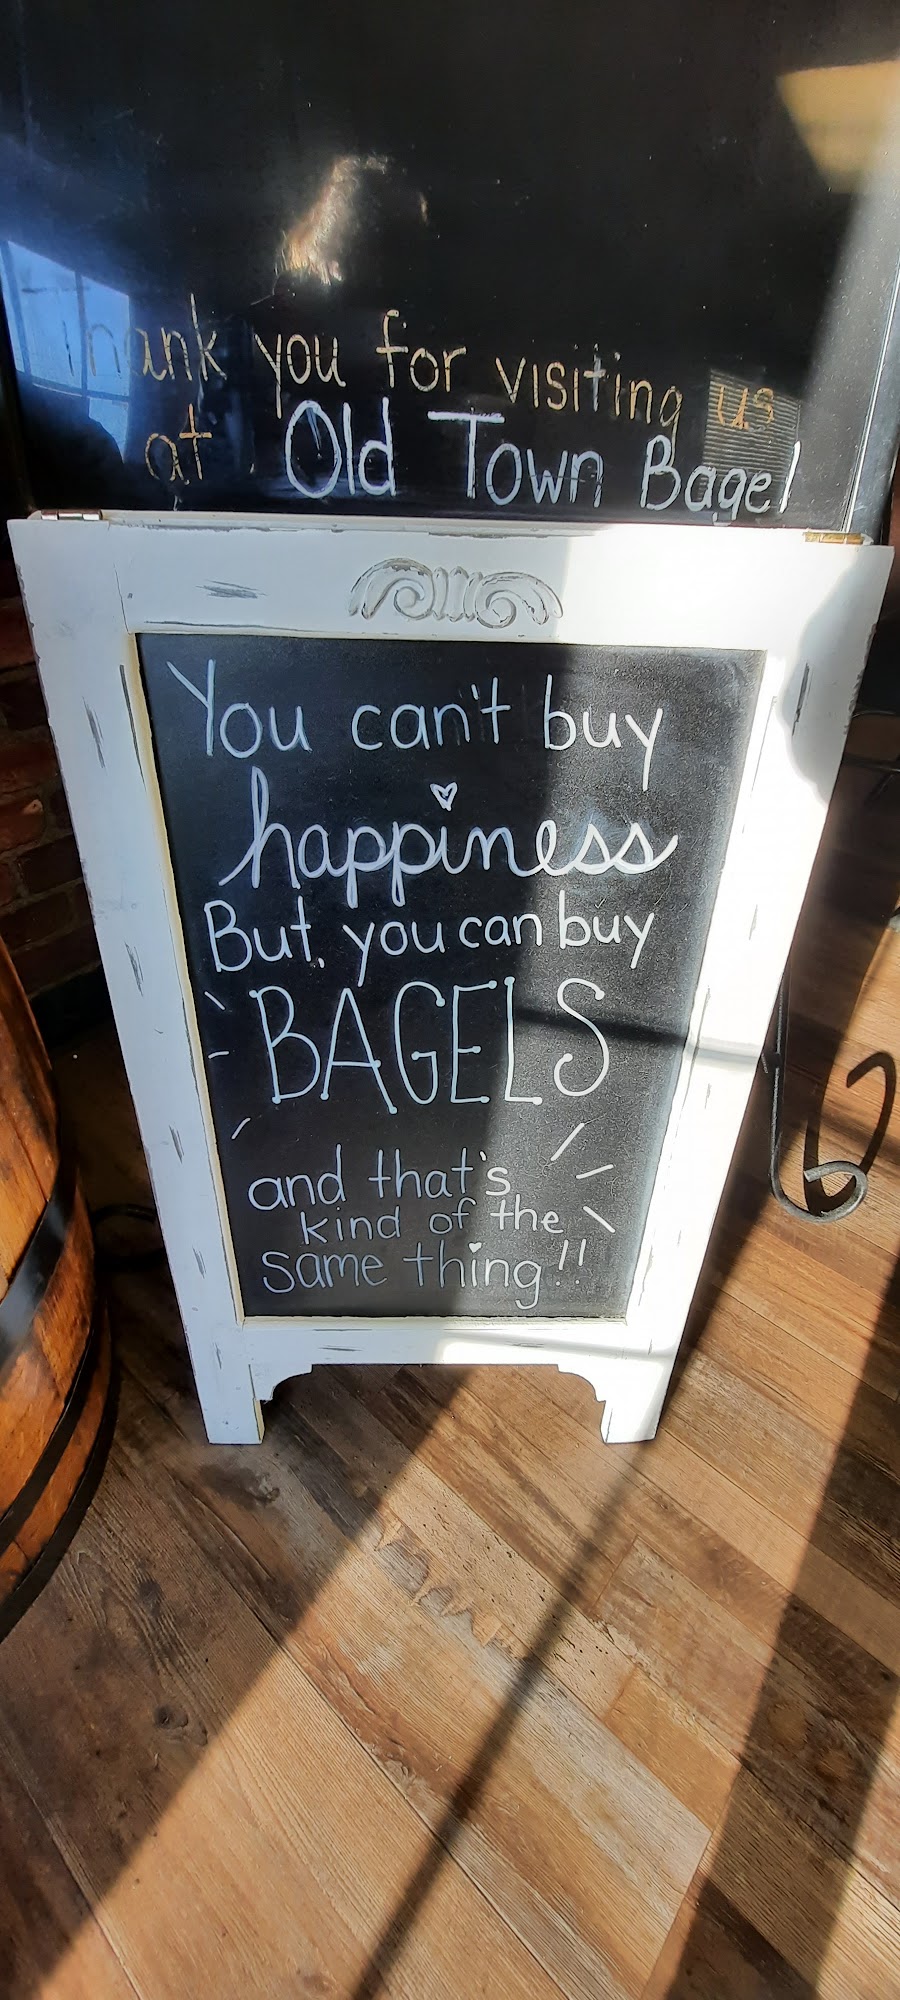 Thank you for visiting us
at Old Town Bagel
You can't buy
happiness
But, you can buy
BAGELS
and that's
kind of the
same thing!!